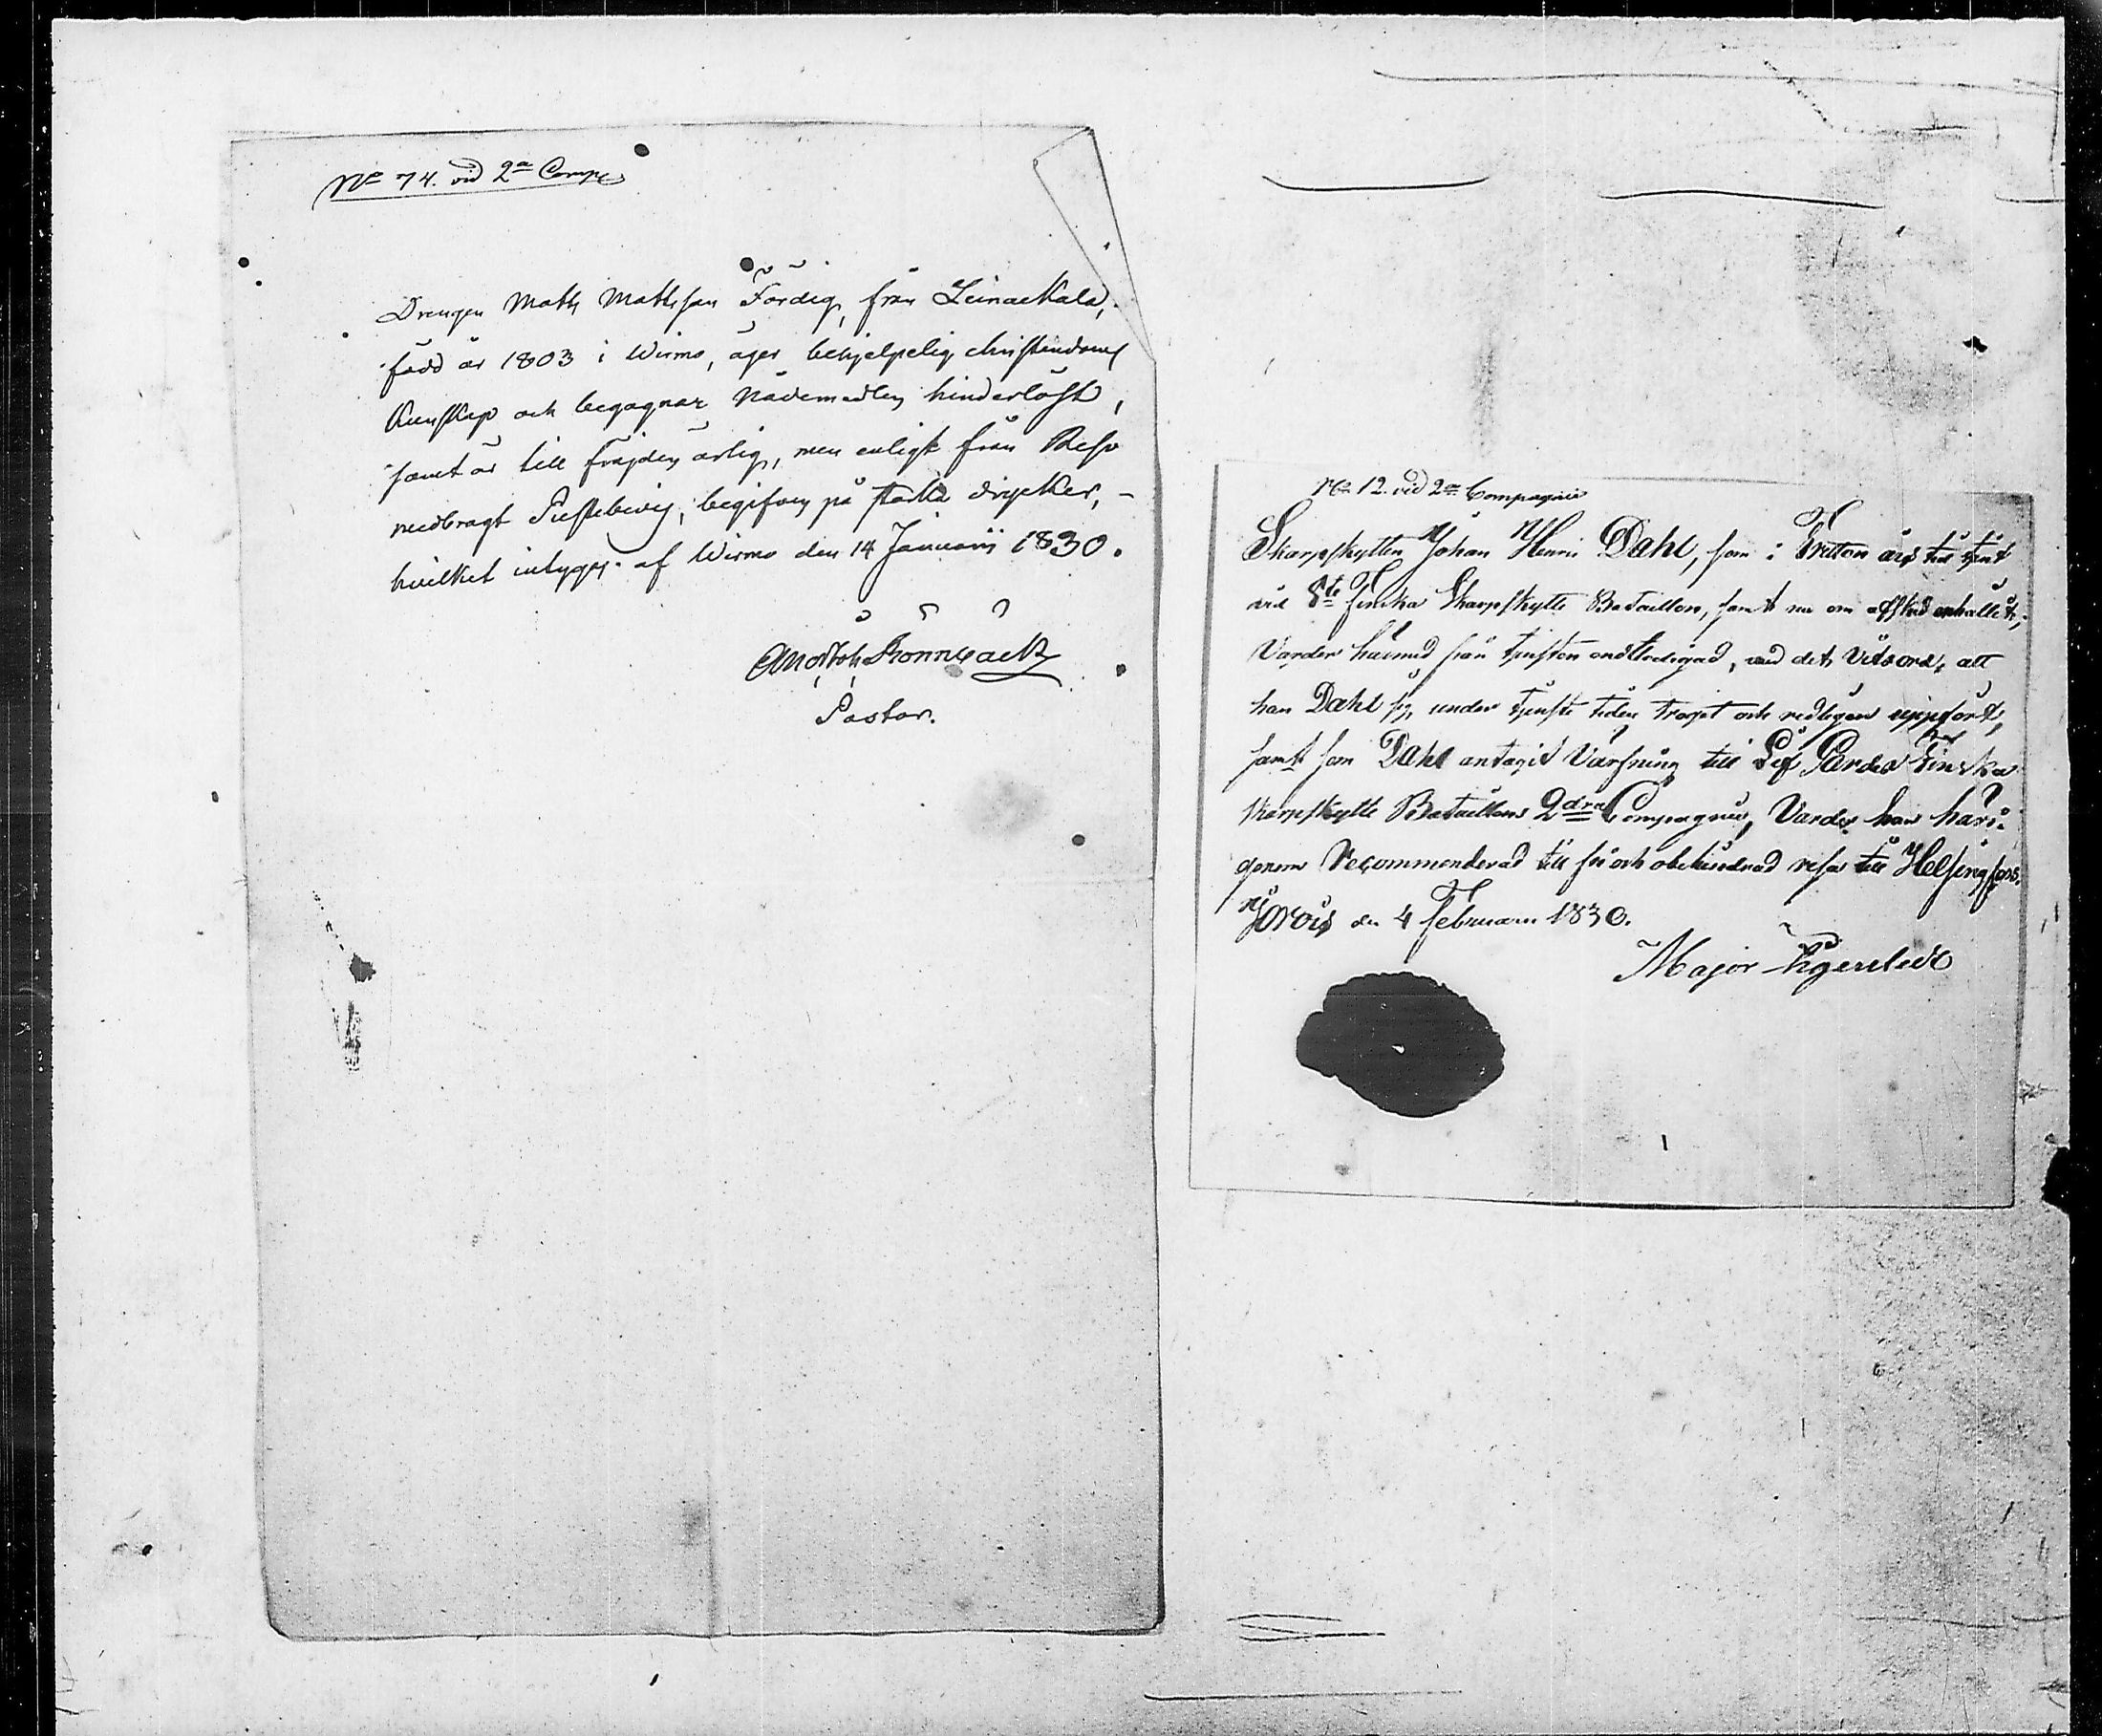 No 74. vid 2a Comp
Drengen Matts Mattsson Färdig, från Leinackala,
född år 1803 i Wirmo, äger behjelpelig christendoms
Kunskap och begagnar nådemedlen hinderlöst,
samt är till frejden ärlig, men enligt från Reso
medbragt Prestebevis, begifven på starka drycker, –
hvilket intygas af Wirmo den 14 Januarii 1830.
Rönnbäck
Pastor.
No 12. vid 2a Compagnie
Skarpskytten Johan Henric Dahl, som i Tretton års tid tjent
vid finska Skarpskytte Bataillon, samt nu om afsked anhållit,
Varder härmed från tjensten, med det Vitsord, att
han Dahl sig under tjenste tiden troget och redligen uppfört,
samt som Dahl antagit Värfning till Lif Gardes Finska
Skarpskytte Bataillons 2dra Compagnie, Varder han häri-
genom Recommenderad till fri och obehindrad resa till Helsingfors.
Jorois den 4 Februarii 1830.
Major